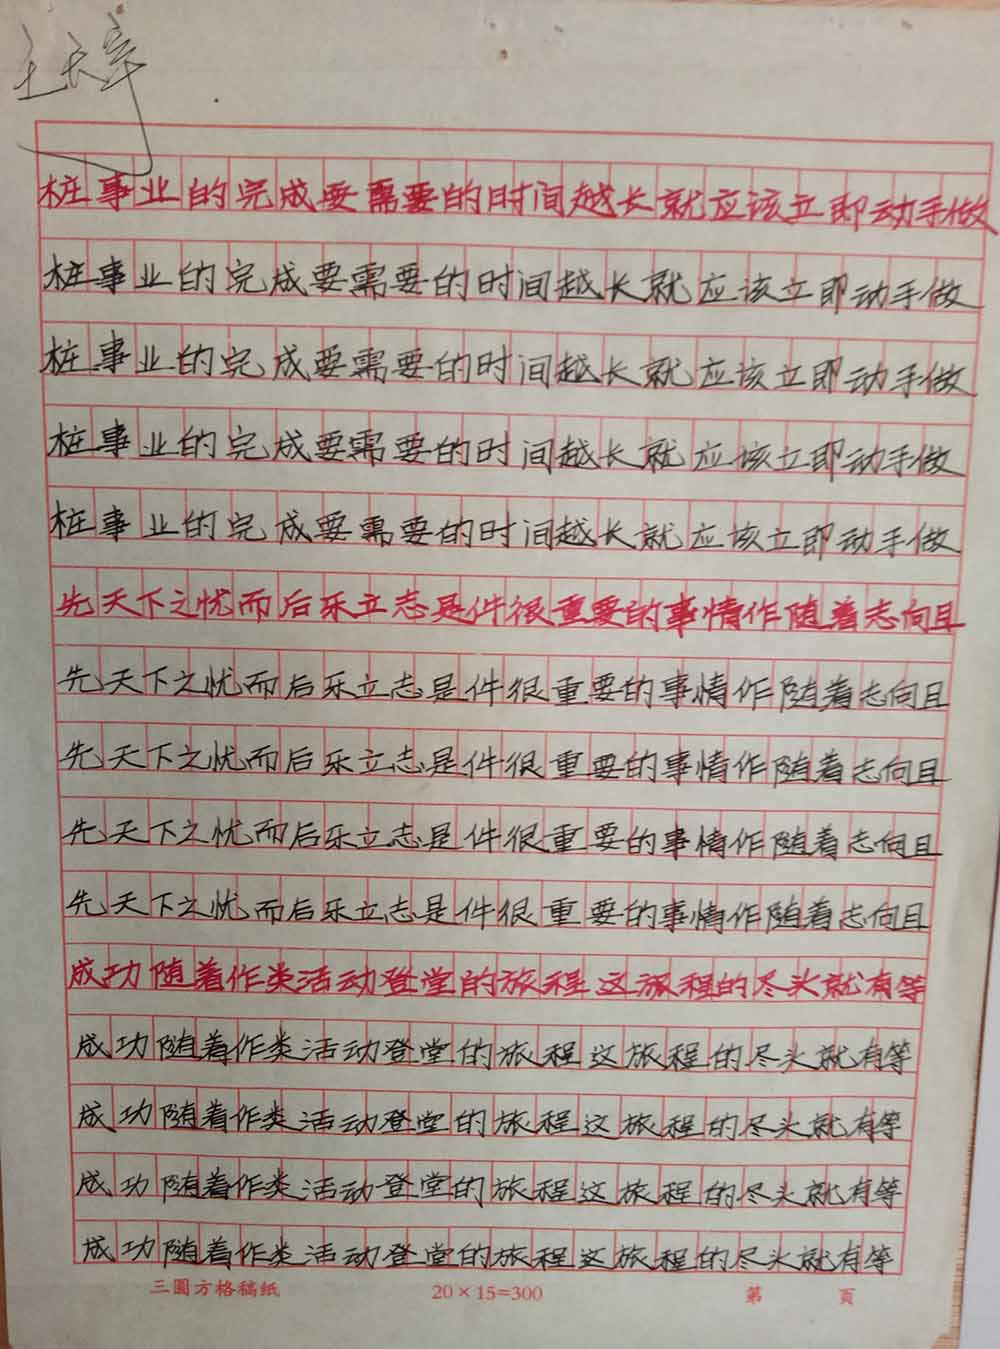 桩事业的完成要需要的时间越长就应该立即动手做
桩事业的完成要需要的时间越长就应该立即动手做
桩事业的完成要需要的时间越长就应该立即动手做
桩事业的完成要需要的时间越长就应该立即动手做
桩事业的完成要需要的时间越长就应该立即动手做
先天下之忧而后乐立志是件很重要的事情作随着志向且
先天下之忧而后乐立志是件很重要的事情作随着志向且
先天下之忧而后乐立志是件很重要的事情作随着志向且
先天下之忧而后乐立志是件很重要的事情作随着志向且
先天下之忧而后乐立志是件很重要的事情作随着志向且
成功随着作类活动登堂的旅程这旅程的尽头就有等
成功随着作类活动登堂的旅程这旅程的尽头就有等
成功随着作类活动登堂的旅程这旅程的尽头就有等
成功随着作类活动登堂的旅程这旅程的尽头就有等
成功随着作类活动登堂的旅程这旅程的尽头就有等
三圆方格稿纸 20×15=300 第 页